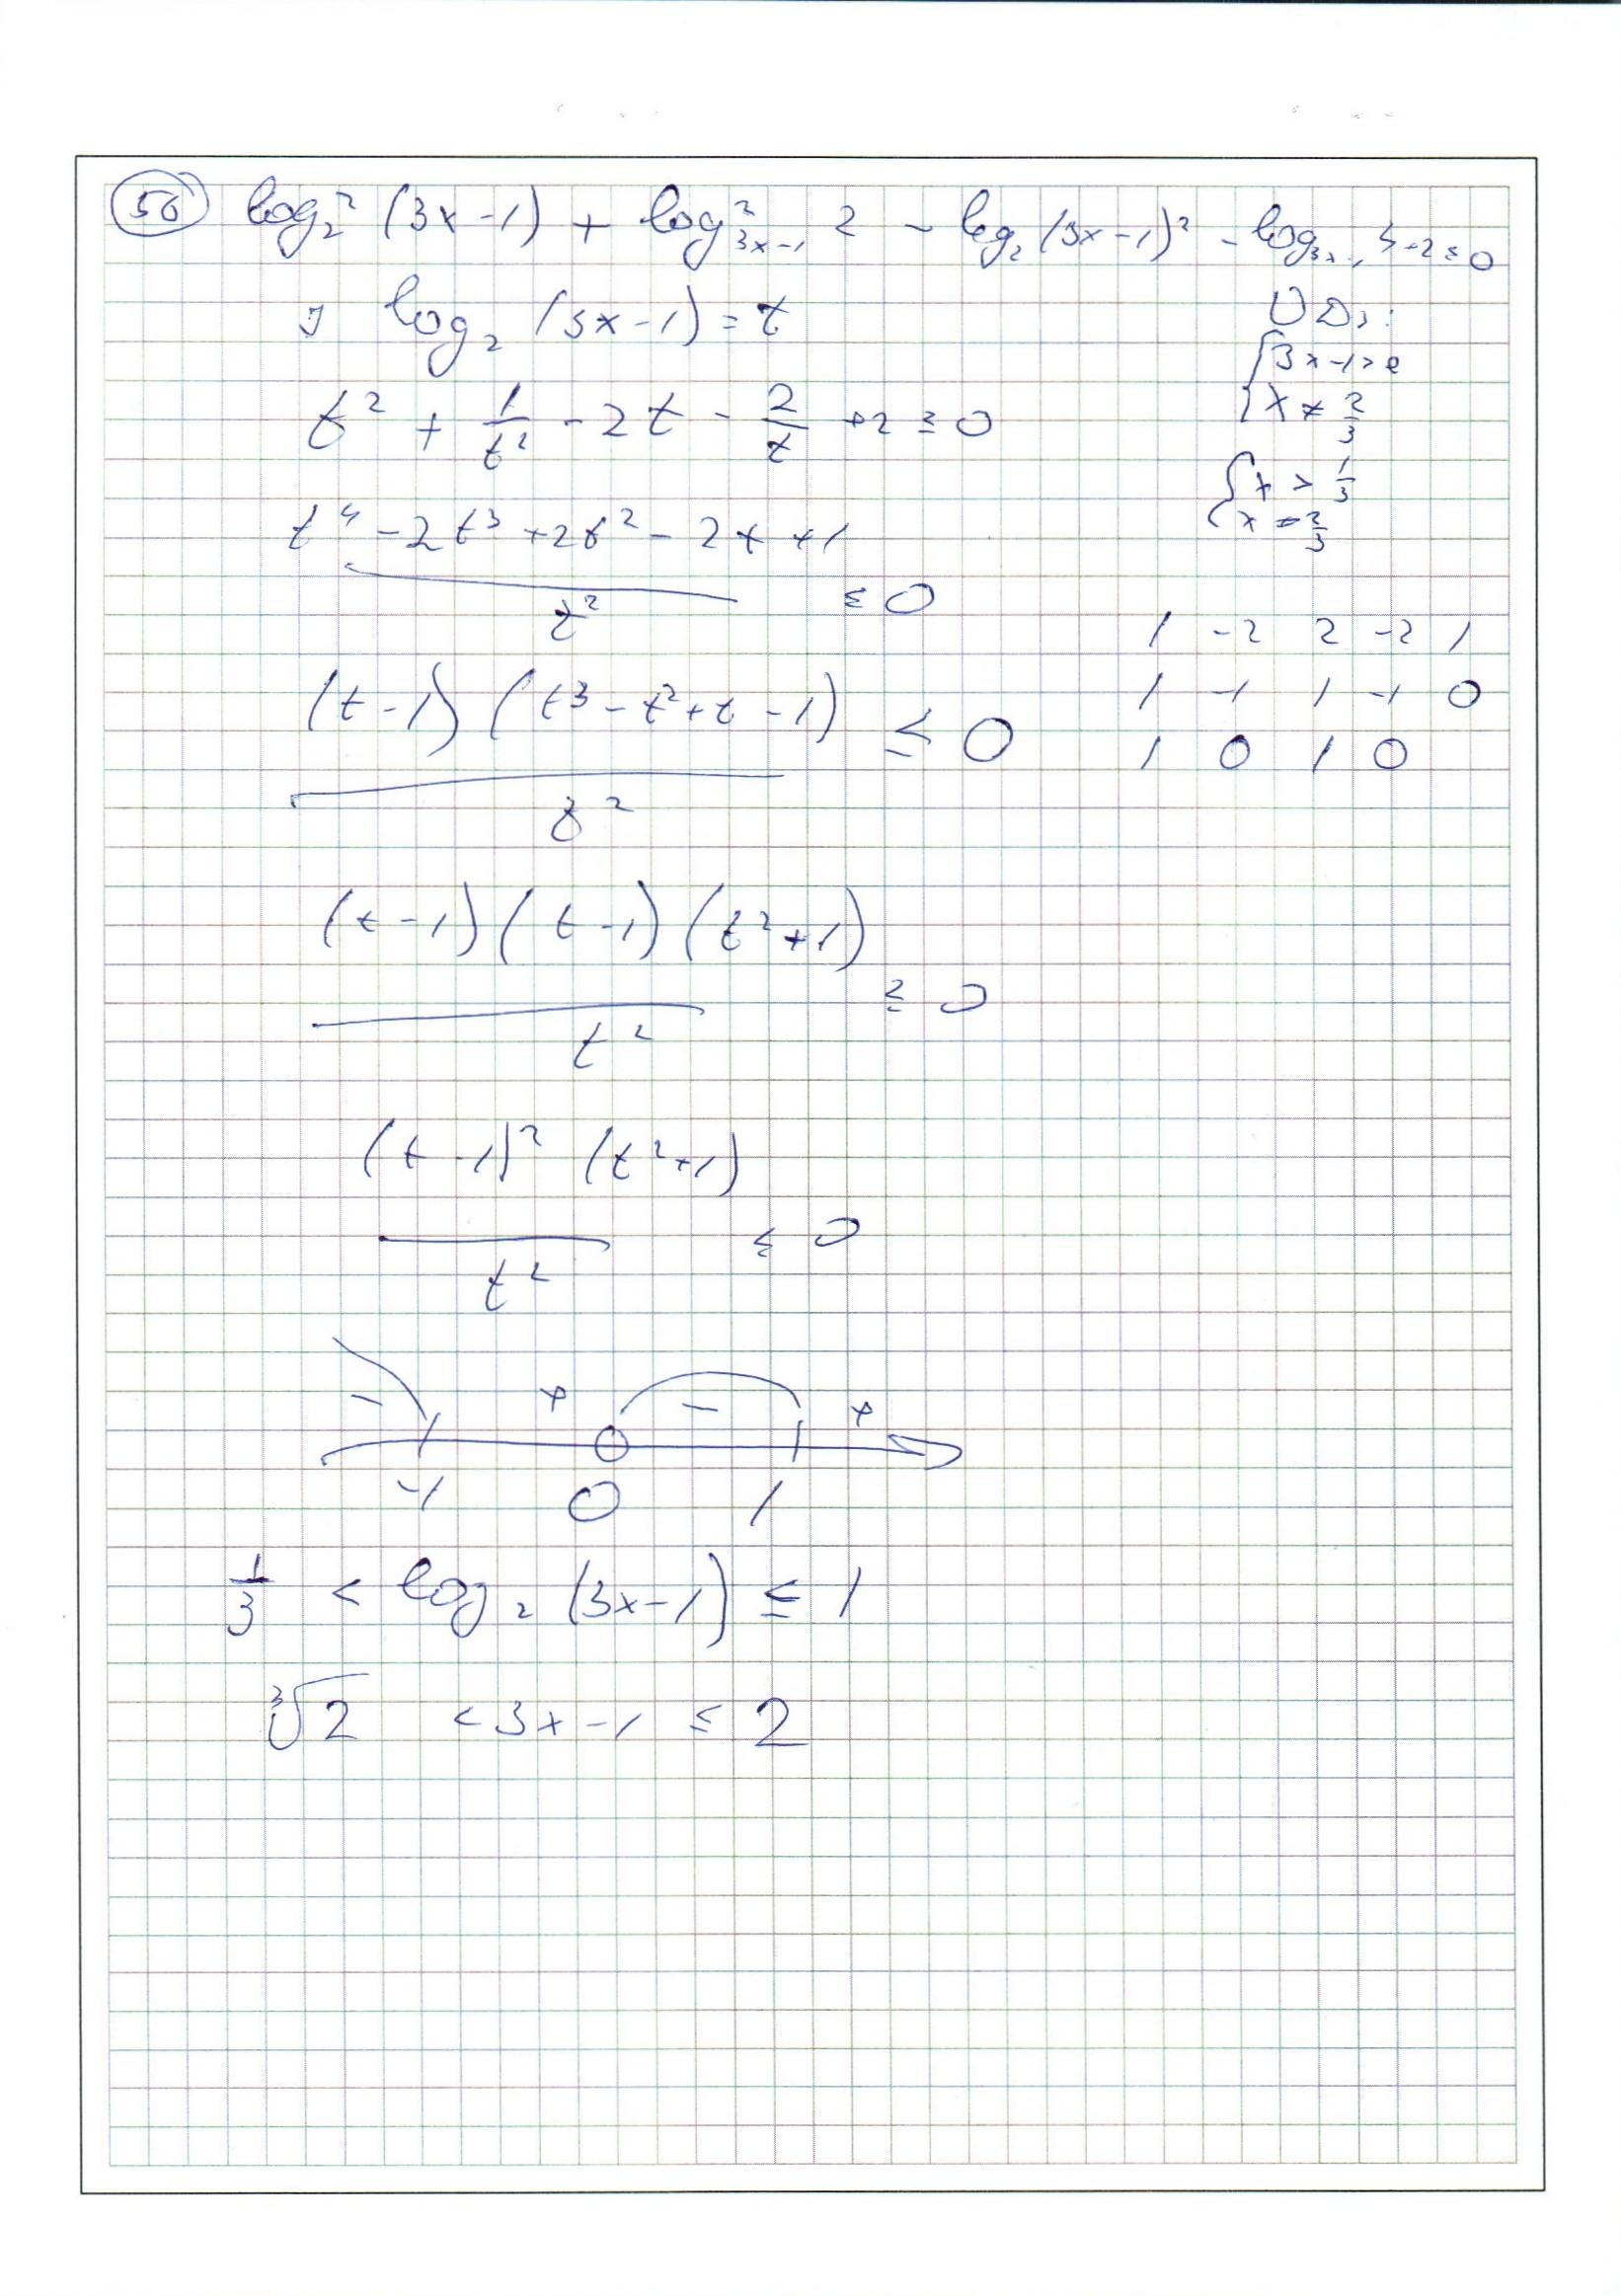 56 log₂² (3x-1) + log²₃ₓ₋₁ 2 - log₂ (3x-1)² - log₃ₓ₋₁ 4+2≤0
log₂ (3x-1) = t
ОДЗ:
{3x-1>0
{x ≠ 2/3
t² + 1/t² - 2t - 2/t +2 ≤ 0
{x > 1/3
{x ≠ 2/3
(t⁴ - 2t³ + 2t² - 2t + 1)/t² ≤ 0
1 -2 2 -2 1
1 -1 1 -1 0
1 0 1 0
(t-1) (t³ - t² + t - 1)/t² ≤ 0
(t-1) (t-1) (t²+1)/t² ≤ 0
(t-1)² (t²+1)/t² ≤ 0
- + - +
-1 0 1
1/3 < log₂ (3x-1) ≤ 1
∛2 < 3x-1 ≤ 2